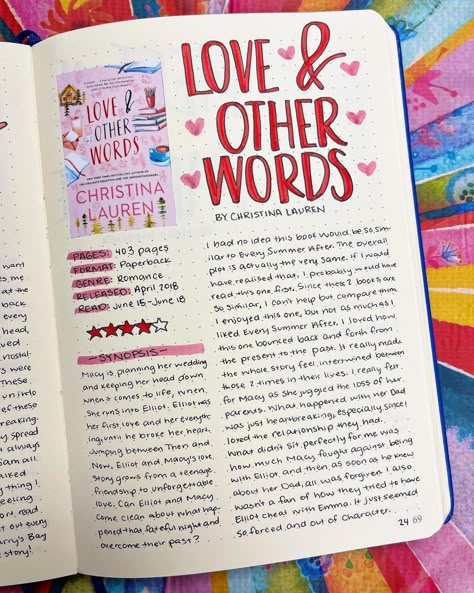 LOVE &
OTHER
WORDS
BY CHRISTINA LAUREN
LOVE &
OTHER
WORDS
CHRISTINA
LAUREN
PAGES: 403 pages
FORMAT: Paperback
GENRE: Romance
RELEASED: April 2018
READ: June 15-June 18
-SYNOPSIS-
Macy is planning her wedding
and keeping her head down
when it comes to life, when
she runs into Elliot. Elliot was
her first love and her everyth
ing, until he broke her heart.
Jumping between Then and
Now, Elliot and Macy's love
story grows from a teenage
friendship to unforgettable
love. Can Elliot and Macy
come clean about what hap-
pened that fateful night and
overcome their past?
I had no idea this book would be so sim-
ilar to Every Summer After. The overall
plot is actually the very same. If I would
have realised that, I probably would have
read this one first. Since these 2 books are
so similar, I can't help but compare them.
I enjoyed this one, but not as much as I
liked Every Summer After. I loved how
this one bounced back and forth from
the present to the past. It really made
the whole story feel intertwined between
those 2 times in their lives. I really felt
for Macy as she juggled the loss of her
parents. What happened with her Dad
was just heartbreaking, especially since I
loved the relationship they had.
What didn't sit perfectly for me was
how much Macy fought against being
with Elliot and then as soon as he knew
about her Dad, all was forgiven. I also
wasn't a fan of how they tried to have
Elliot cheat with Emma. It just seemed
so forced and out of character.
24 69
want
tes me
at the
back
every
head,
nostal-
s were
These
wn into
of these
reaking.
y spread
t always
Sam all
alked
y thing I
feeling
ort read.
t out every
arry's Bay
e story!